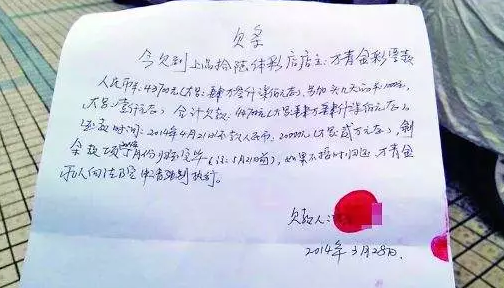 欠条
今欠到上高拾陆体彩店店主:方青金彩票款
人民币车:43700元(大写:肆万叁仟柒佰元正),另加头几天的1000元,
大写:壹仟元正) 合计欠款:44700元(大写:肆万肆仟柒佰元正)。
还款时间:2014年4月21日还款人民币:20000元(大写:贰万元正),剩
余款项 月份归还完毕(注:5月21日前),如果不按时归还,方青金
可以向法院申请强制执行。
欠款人:
2014年3月28日。